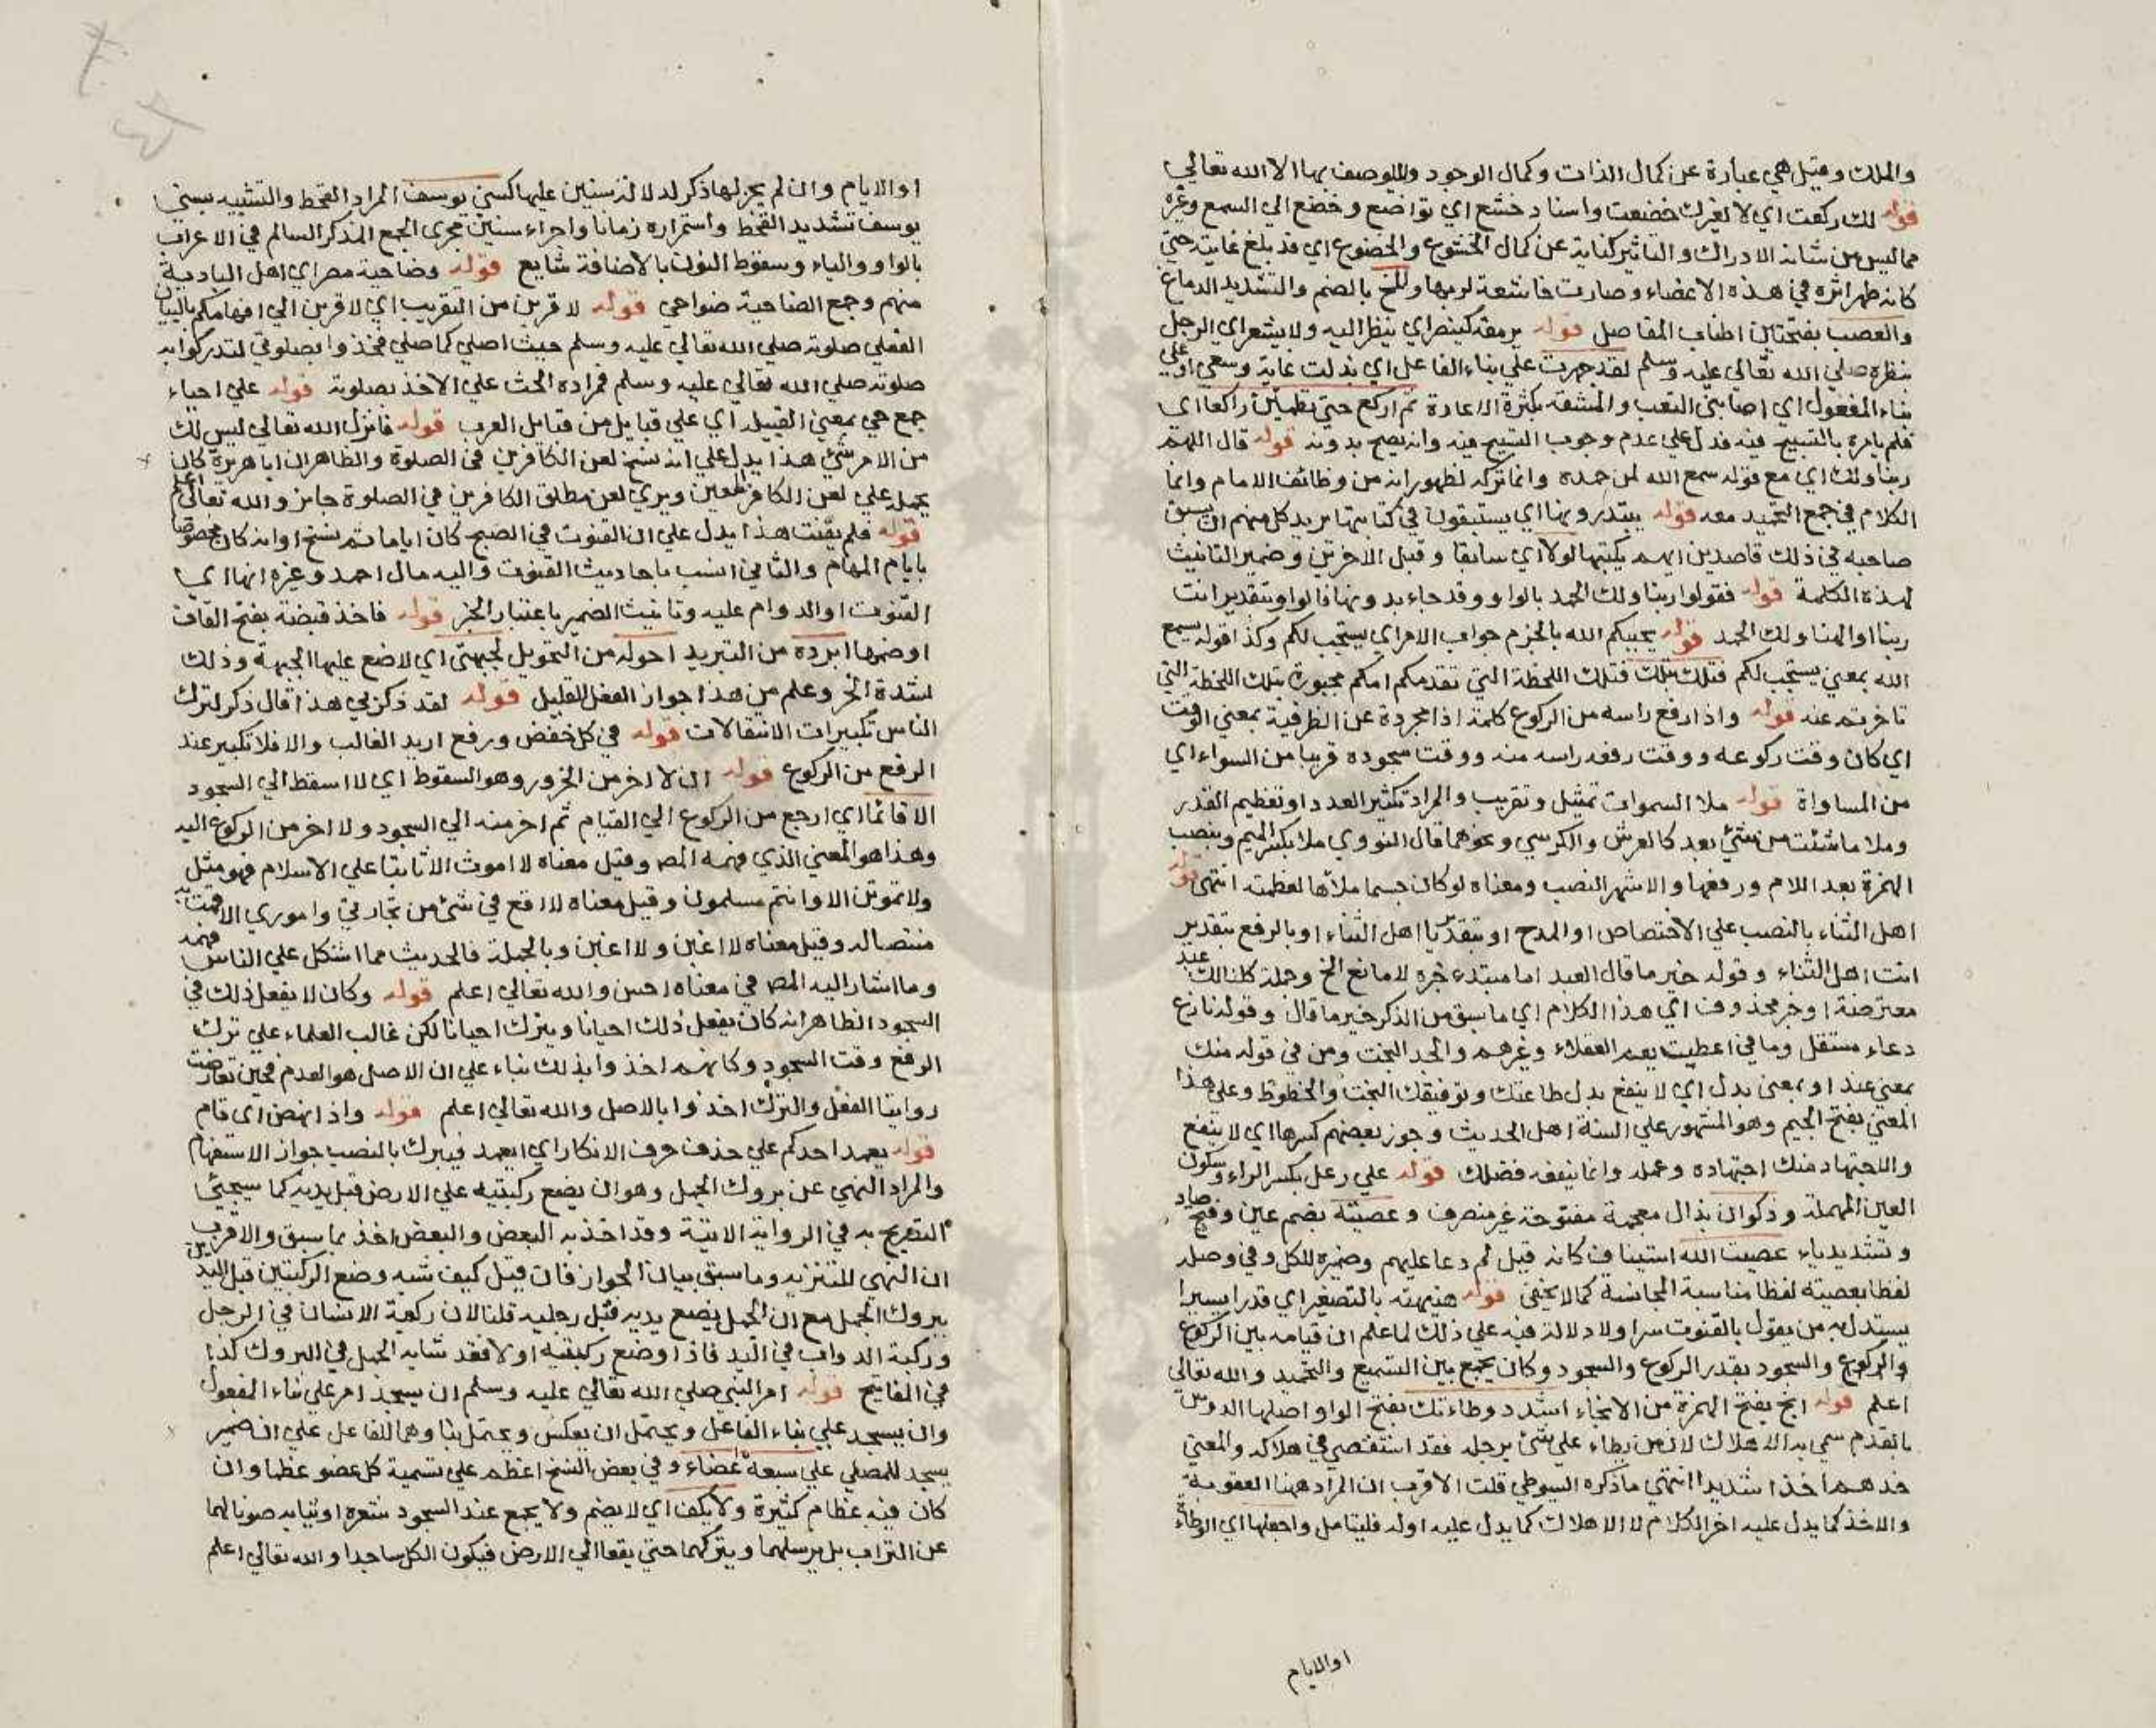 والملك وقيل هي عبارة عن كمال الذات وكمال الوجود ولا يوصف بها الا الله تعالي
قوله لك ركعت اي لا لغيرك خضعت واسناد خشع اي تواضع وخضع الي السمع وغيره
مما ليس من شانه الادراك والتاثير كناية عن كمال الخشوع والخضوع اي قد بلغ غايته حتي
كانه ظهر اثره في هذه الاعضاء وصارت خاشعة لربها والمخ بالضم والتشديد الدماغ
والعصب بفتحتين اطناب المفاصل قوله يرمقه كينصر اي ينظر اليه ولا يشعر اي الرجل
بنظره صلي الله تعالي عليه وسلم لقد جهدت علي بناء الفاعل اي بذلت غاية وسعي او علي
بناء المفعول اي اصابني التعب والمشقة بكثرة الاعادة ثم اركع حتي تطمئن راكعا اي
فلم يامره بالتسبيح فيه فدل علي عدم وجوب التسبيح فيه وانه يصح بدونه قوله قال اللهم
ربنا ولك اي مع قوله سمع الله لمن حمده وانما تركه لظهور انه من وظائف الامام وانما
الكلام في جمع التحميد معه قوله يبتدرونها اي يستبقون في كتابتها يريد كل منهم ان يسبق
صاحبه في ذلك قاصدين ايهم يكتبها اولا اي سابقا وقبل الاخرين وضمير التانيث
لهذه الكلمة قوله فقولوا ربنا ولك الحمد بالواو وقد جاء بدونها فالواو بتقدير انت
ربنا او الهنا ولك الحمد قوله يجيبكم الله بالجزم جواب الامر اي يستجب لكم وكذا قوله يسمع
الله بمعني يستجب لكم فتلك بتلك فتلك اللحظة التي تقدمكم امامكم مجبورة بتلك اللحظة التي
تاخرتم عنه قوله واذا رفع راسه من الركوع كلمة اذا مجردة عن الظرفية بمعني الوقت
اي كان وقت ركوعه ووقت رفعه راسه منه ووقت سجوده قريبا من السواء اي
من المساواة قوله ملا السموات تمثيل وتقريب والمراد تكثير العدد او تعظيم القدر
وملا ما شئت من شئ بعد كالعرش والكرسي ونحوهما قال النووي ملا بكسر الميم وبنصب
الهمزة بعد اللام ورفعها والاشهر النصب ومعناه لو كان جسما ملأها لعظمته انتهي قوله
اهل الثناء بالنصب علي الاختصاص او المدح او بتقدير يا اهل الثناء او بالرفع بتقدير
انت اهل الثناء وقوله خير ما قال العبد اما مبتدء خبره لا مانع الخ وجملة كلنا لك عبد
معترضة او خبر محذوف اي هذا الكلام اي ما سبق من الذكر خير ما قال وقوله لا نازع
دعاء مستقل وما في اعطيت يعم العقلاء وغيرهم والجد البخت ومن في قوله منك
بمعني عند او بمعني بدل اي لا ينفع بدل طاعتك وتوفيقك البخت والحظوظ وعلي هذا
المعني بفتح الجيم وهو المشهور علي السنة اهل الحديث وجوز بعضهم كسرها اي لا ينفع
والاجتهاد منك اجتهاده وعمله وانما ينفعه فضلك قوله علي رعل بكسر الراء وسكون
العين المهملة وذكوان بذال معجمة مفتوحة غير منصرف وعصيته بضم عين وفتح صاد
وتشديد ياء عصيت الله استيناف كانه قيل لم دعا عليهم وضميره للكل وفي وصله
لفظا بعصية لفظا مناسبة المجانسة كما لا يخفي قوله هنيهة بالتصغير اي قدرا يسيرا
يستدل به من يقول بالقنوت سرا ولا دلالة فيه علي ذلك لما علم ان قيامه بين الركوع
والركوع والسجود بقدر الركوع والسجود وكان يجمع بين التسميع والتحميد والله تعالي
اعلم قوله انج بفتح الهمزة من الانجاء اشدد وطاءتك بفتح الواو اصلها الدوس
بالقدم سمي به الاهلاك لان من يطاء علي شئ برجله فقد استقصي في هلاكه والمعني
خذهم اخذا شديدا انتهي ما ذكره السيوطي قلت الاقرب ان المراد ههنا العقوبة
والاخذ كما يدل عليه اخر الكلام لا الاهلاك كما يدل عليه اوله فليتامل واجعلها اي الوطأة
او الايام
او الايام وان لم يجر لها ذكر لدلالة سنين عليها كسني يوسف المراد القحط والتشبيه بسني
يوسف تشديد القحط واستمراره زمانا واجراء سنين مجري الجمع المذكر السالم في الاعراب
بالواو والياء وسقوط النون بالاضافة شايع قوله وضاحية مضر اي اهل البادية
منهم وجمع الضاحية ضواحي قوله لاقربن من التقريب اي لاقربن الي افهامكم بالبيان
الفعلي صلوته صلي الله تعالي عليه وسلم حيث اصلي كما صلي فخذوا بصلوتي لتدركوا به
صلوته صلي الله تعالي عليه وسلم فمراده الحث علي الاخذ بصلوته قوله علي احياء
جمع حي بمعني القبيلة اي علي قبايل من قبايل العرب قوله فانزل الله تعالي ليس لك
من الامر شئ هذا يدل علي انه نسخ لعن الكافرين في الصلوة والظاهر ان ابا هريرة كان
يحمله علي لعن الكافر المعين ويري لعن مطلق الكافرين في الصلوة جايز والله تعالي اعلم
قوله فلم يقنت هذا يدل علي ان القنوت في الصبح كان اياما ثم نسخ او انه كان مخصوصا
بايام المهام والثاني انسب باحاديث القنوت واليه مال احمد وغيره انها اي
القنوت او الدوام عليه وتانيث الضمير باعتبار الخبر قوله فاخذ قبضة بفتح القاف
او ضمها ابرده من التبريد احوله من التحويل لجبهتي اي لاضع عليها الجبهة وذلك
لشدة الحر وعلم من هذا جواز الفعل القليل قوله لقد ذكرني هذا قال ذكر لترك
الناس تكبيرات الانتقالات قوله في كل خفض ورفع اريد الغالب والا فلا تكبير عند
الرفع من الركوع قوله ان لا اخر من الخرور وهو السقوط اي لا اسقط الي السجود
الا قائما اي ارجع من الركوع الي القيام ثم اخر منه الي السجود ولا اخر من الركوع اليه
وهذا هو المعني الذي فهمه المص وقيل معناه لا اموت الا ثابتا علي الاسلام فهو مثل
ولا تموتن الا وانتم مسلمون وقيل معناه لا اقع في شئ من تجارتي واموري الا قمت به
منتصبا له وقيل معناه لا اغبن ولا اغبن وبالجملة فالحديث مما اشكل علي الناس فهمه
وما اشار اليه المص في معناه احسن والله تعالي اعلم قوله وكان لا يفعل ذلك في
السجود الظاهر انه كان يفعل ذلك احيانا ويترك احيانا لكن غالب العلماء علي ترك
الرفع وقت السجود وكانهم اخذوا بذلك بناء علي ان الاصل هو العدم فحين تعارضت
روايتا الفعل والترك اخذوا بالاصل والله تعالي اعلم قوله واذا نهض اي قام
قوله يعمد احدكم علي حذف حرف الانكار اي ايعمد فيبرك بالنصب جواز الاستفهام
والمراد النهي عن بروك الجمل وهو ان يضع ركبتيه علي الارض قبل يديه كما سيجئ
التصريح به في الرواية الاتية وقد اخذ به البعض والبعض اخذ بما سبق والاقرب
ان النهي للتنزيه وما سبق بيان الجواز فان قيل كيف شبه وضع الركبتين قبل اليدين
ببروك الجمل مع ان الجمل يضع يديه قبل رجليه قلنا لان ركبة الانسان في الرجل
وركبة الدواب في اليد فاذا وضع ركبتيه اولا فقد شابه الجمل في البروك كذا
في المفاتيح قوله امر النبي صلي الله تعالي عليه وسلم ان يسجد امر علي بناء المفعول
وان يسجد علي بناء الفاعل ويحتمل ان يعكس ويحتمل بناوهما للفاعل علي ان ضمير
يسجد للمصلي علي سبعة اعضاء وفي بعض النسخ اعظم علي تسمية كل عضو عظما وان
كان فيه عظام كثيرة ولا يكف اي لا يضم ولا يجمع عند السجود شعره او ثيابه صونا لهما
عن التراب بل يرسلهما ويتركهما حتي يقعا الي الارض فيكون الكل ساجدا والله تعالي اعلم